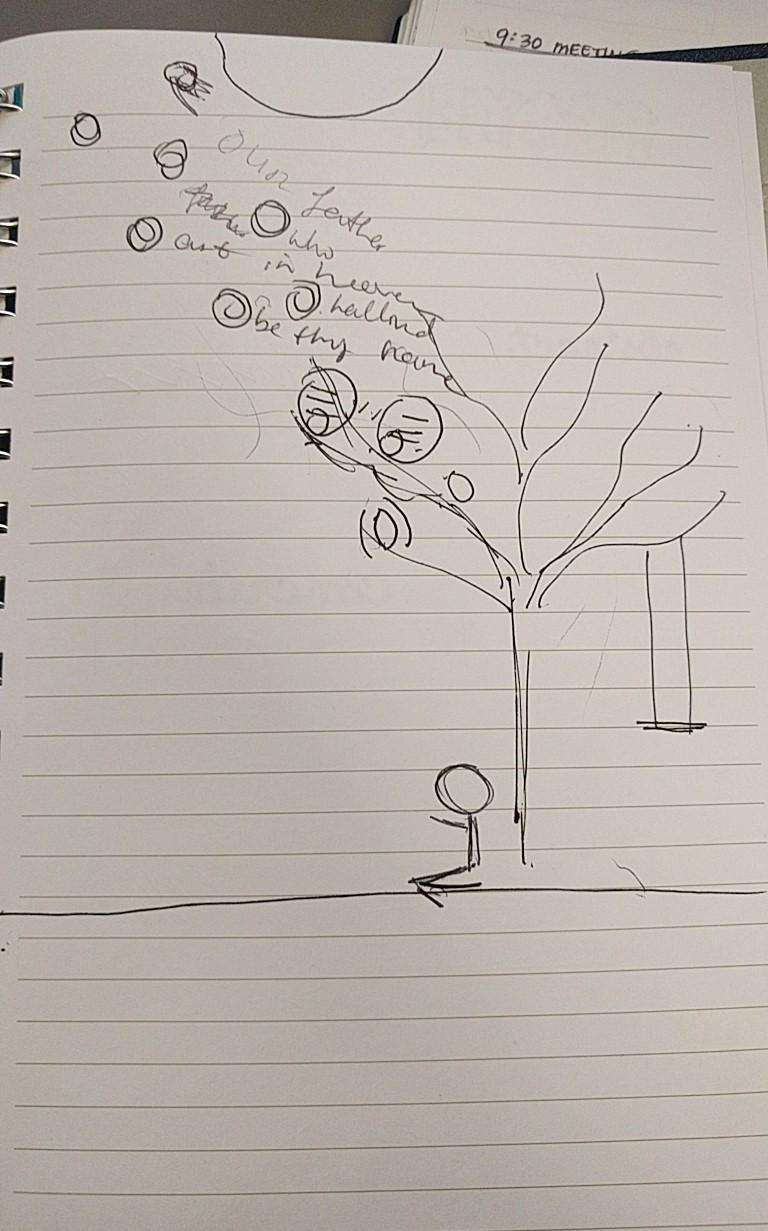 9:30 MEETING
Our father
who
art in heaven
hallowd
be thy name